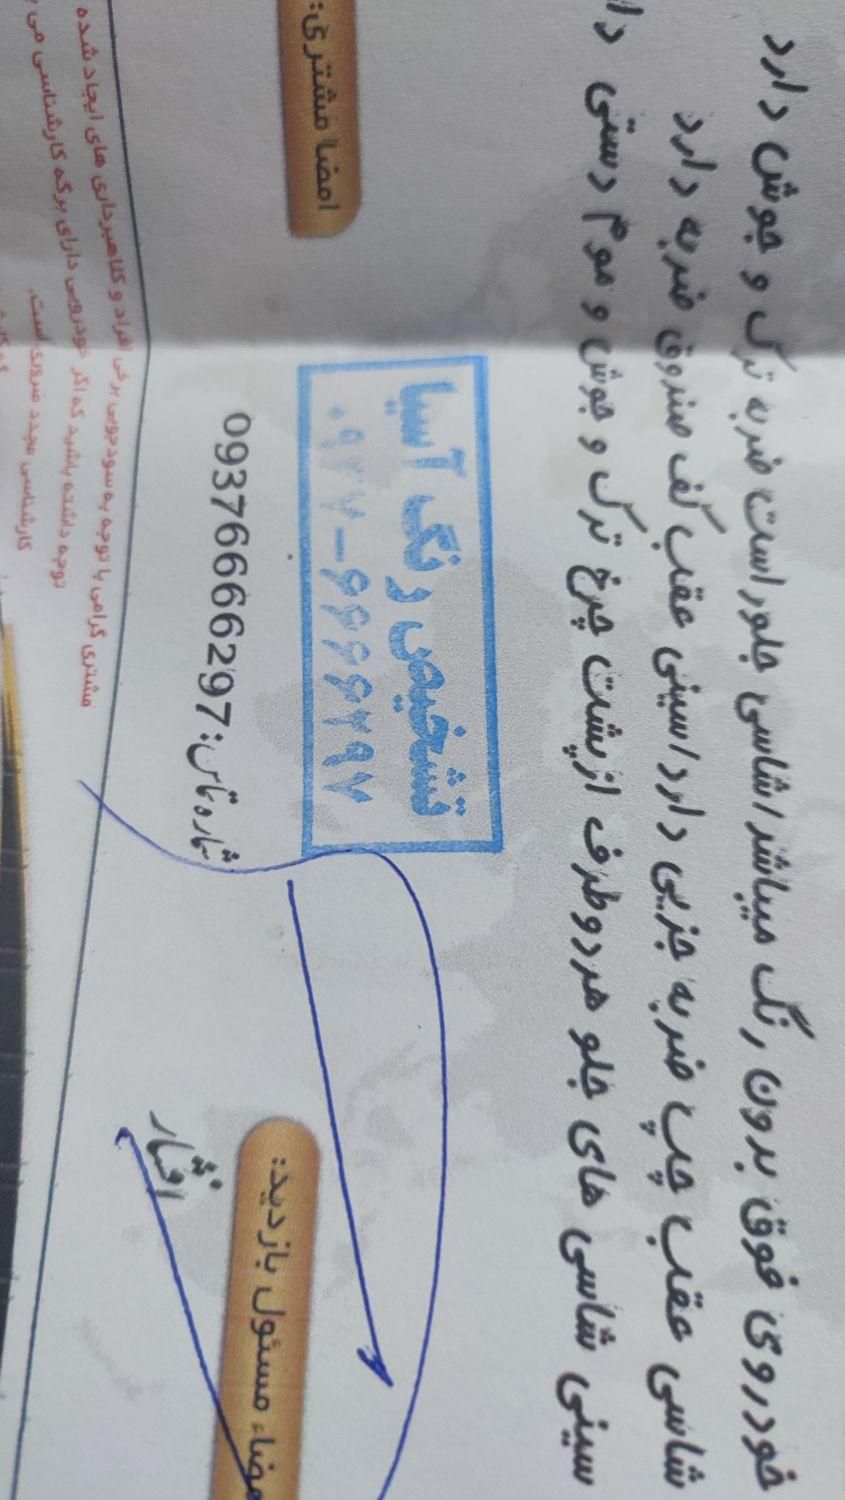 خودروی فوق بدون رنگ میباشد/شاسی جلو راست ضربه ترک و جوش دارد
شاسی عقب چپ ضربه جزیی دارد/سینی عقب کف صندوق ضربه دارد
سینی شاسی های جلو هر دو طرف از پشت چرخ ترک و جوش و موم دستی
امضا مشتری:
تشخیص رنگ آسیا
۰۹۳۷-۶۶۶۶۲۹۷
شماره تماس: 09376666297
مسئول بازدید:
افشار
مشتری گرامی با توجه به سودجویی برخی افراد و کلاهبرداری های ایجاد شده
توجه داشته باشید که اگر خودرویی دارای برگه کارشناسی می
کارشناسی مجدد ضروری است.